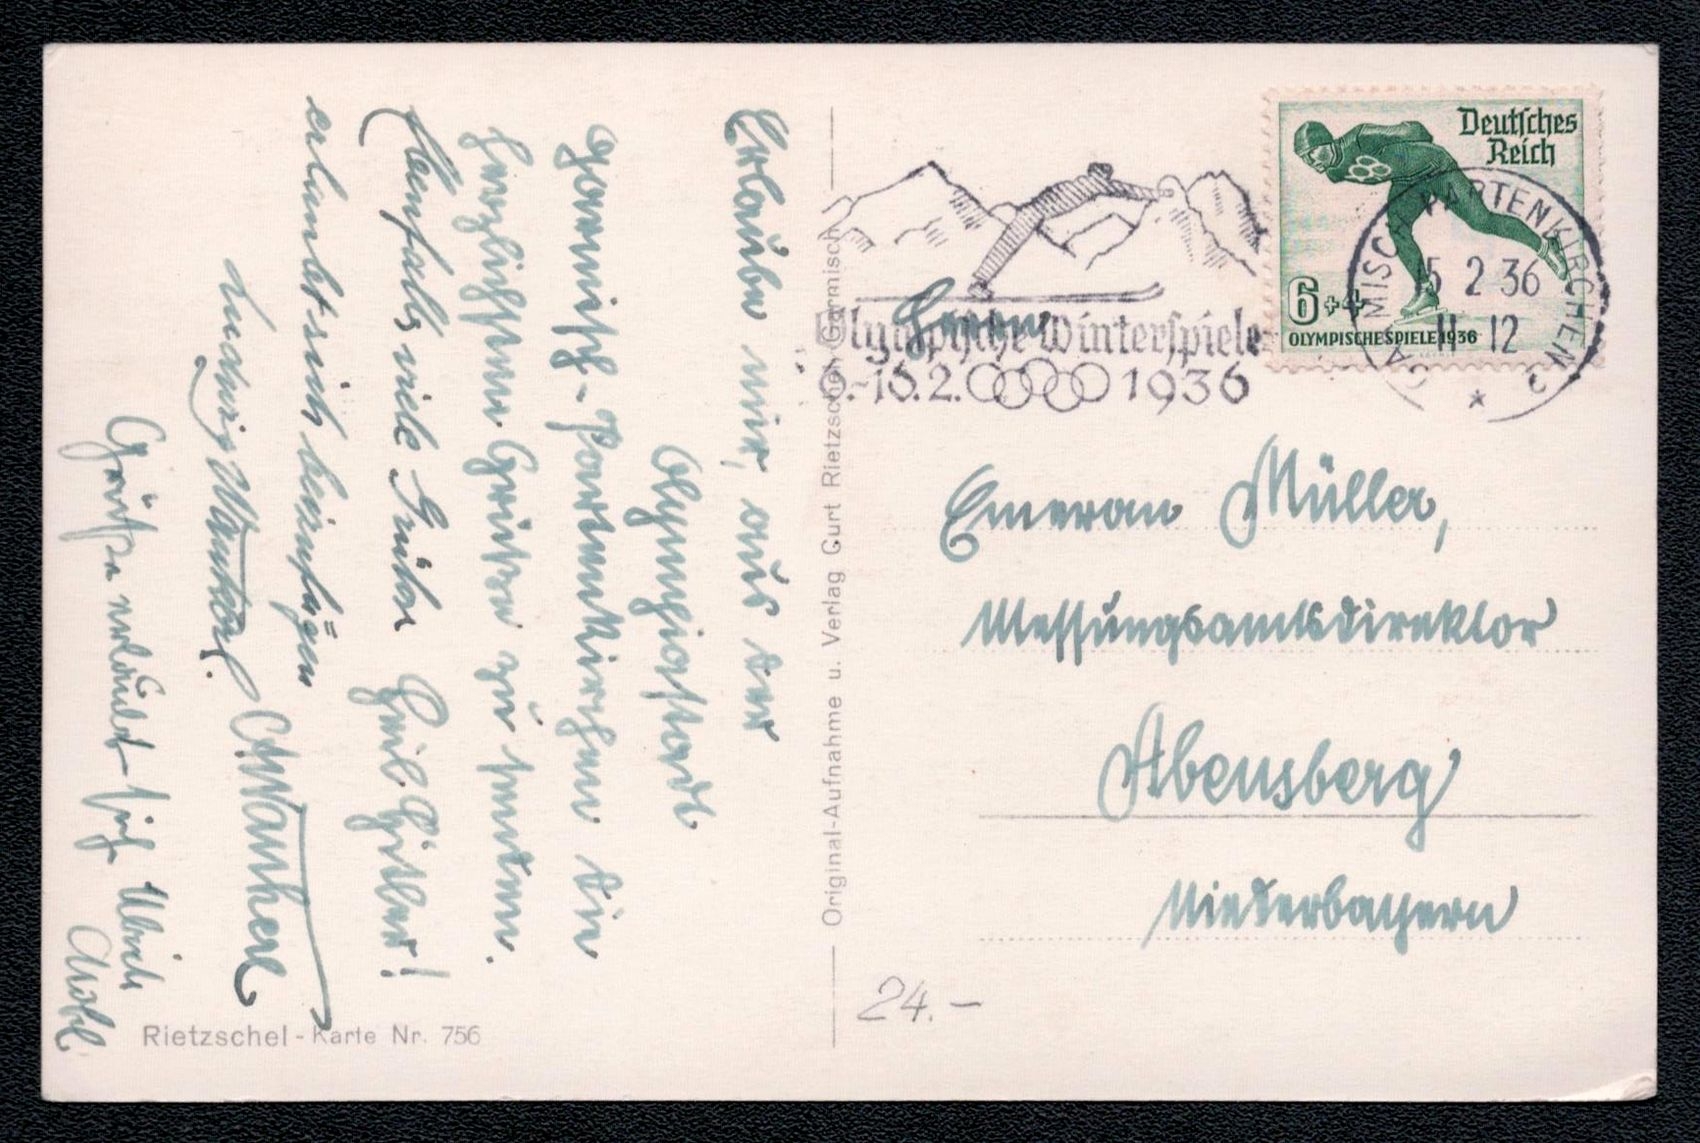 Erlaube mir, aus der
Olympiastadt
Garmisch-Partenkirchen die
herzlichsten Grüße zu senden.
Heil Hitler!
Ebenfalls viele Grüße
erlaubt sich beizufügen
Ludwig
Grüße erlaubt sich
Rietzschel-Karte Nr. 756
Original-Aufnahme u. Verlag Curt Rietzschel Garmisch
Olympische Winterspiele
6.-16.2. 1936
Deutsches
Reich
6+4
OLYMPISCHE SPIELE 1936
GARMISCH-PARTENKIRCHEN 2
15 2 36
11-12
Herrn
Emeran Müller,
Messungsamtsdirektor
Abensberg
Niederbayern
24.-